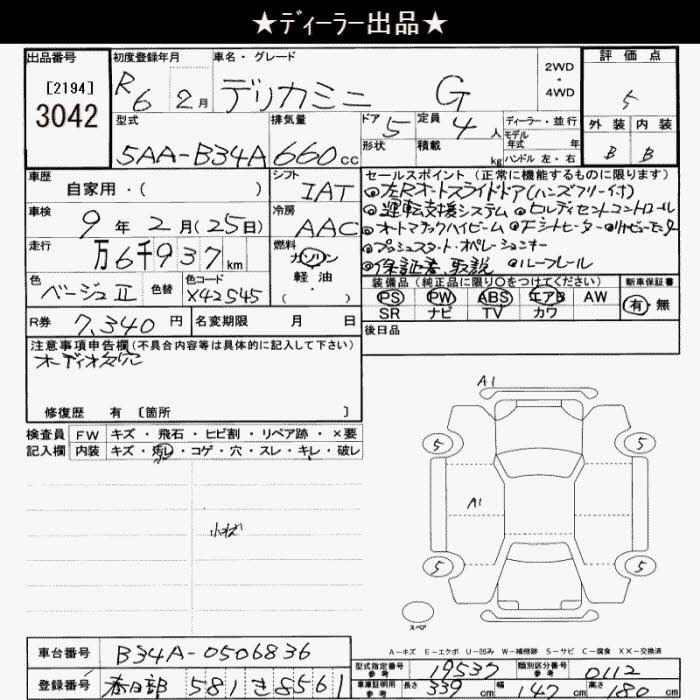 ★ディーラー出品★
出品番号 初度登録年月 車名・グレード 2WD・4WD 評価点
[2194]
3042
R6 2月 デリカミニ G 5
型式 排気量 ドア 5 定員 4人 ディーラー・並行 外装 内装
5AA-B34A 660cc 形状 積載 kg モデル年式 年 B B
ハンドル 左・右
車歴 シフト セールスポイント(正常に機能するものに限ります)
自家用・( ) IAT ◎左Rオートスライドドア(ハンズフリー付)
車検 冷房 ◎運転支援システム ◎ヒルディセントコントロール
9年2月(25日) AAC ◎オートマチックハイビーム
走行 万6千937km 燃料 ガソリン ◎プッシュスタート
軽・油 ◎保証書、取説 ◎ルーフレール
( )
色 色替 色コード 装備品(純正品に限り○をつけてください) 新車保証書
ベージュⅡ X42S45 PS PW ABS エアB AW 有 無
SR ナビ TV カワ
R券 7,340円 名変期限 月 日 後日品
注意事項申告欄(不具合内容等は具体的に記入して下さい)
オーディオ欠穴
修復歴 有 〔箇所 〕
検査員 FW キズ・飛石・ヒビ割・リペア跡・×要
記入欄 内装 キズ・汚レ・コゲ・穴・スレ・キレ・破レ
A1
5 5
A1
小キズ
5 5
スペア
A-キズ E-エクボ U-凹み W-補修跡 S-サビ C-腐食 XX-交換済
車台番号 B34A-0506836
型式指定番号 参考 19537 類別区分番号 参考 0112
登録番号 春日部 581 さ 8561
車庫証明用 参考 長さ 339cm 幅 147cm 高さ 180cm